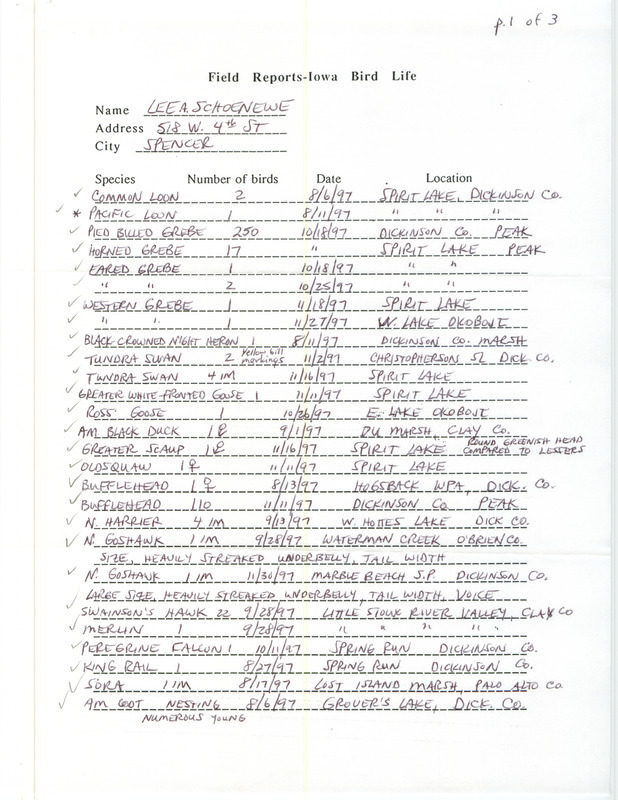 p.1 of 3
Field Reports-Iowa Bird Life
Name LEE A. SCHOENEWE
Address 518 W. 4th ST
City SPENCER
Species Number of birds Date Location
✓ COMMON LOON 2 8/6/97 SPIRIT LAKE, DICKINSON CO.
✓ * PACIFIC LOON 1 8/11/97 " " " "
✓ PIED BILLED GREBE 250 10/18/97 DICKINSON CO. PEAK
✓ HORNED GREBE 17 " SPIRIT LAKE PEAK
✓ EARED GREBE 1 10/18/97 " "
✓ " " 2 10/25/97 " "
✓ WESTERN GREBE 1 11/18/97 SPIRIT LAKE
✓ " " 1 11/27/97 W. LAKE OKOBOJI
✓ BLACK-CROWNED NIGHT HERON 1 8/11/97 DICKINSON CO. MARSH
✓ TUNDRA SWAN 2 Yellow bill markings 11/2/97 CHRISTOPHERSON SL DICK CO.
✓ TUNDRA SWAN 4 IM 11/16/97 SPIRIT LAKE
✓ GREATER WHITE-FRONTED GOOSE 1 11/11/97 SPIRIT LAKE
✓ ROSS' GOOSE 1 10/26/97 E. LAKE OKOBOJI
✓ AM BLACK DUCK 1♀ 9/1/97 DU MARSH, CLAY CO.
✓ GREATER SCAUP 1♀ 11/16/97 SPIRIT LAKE ROUND GREENISH HEAD COMPARED TO LESSERS
✓ OLDSQUAW 1♀ 11/11/97 SPIRIT LAKE
✓ BUFFLEHEAD 1♀ 8/13/97 HOGSBACK WPA, DICK. CO.
✓ BUFFLEHEAD 110 11/11/97 DICKINSON CO PEAK
✓ N. HARRIER 4 IM 9/13/97 W. HOTTES LAKE DICK CO.
✓ N. GOSHAWK 1 IM 9/28/97 WATERMAN CREEK O'BRIEN CO.
SIZE, HEAVILY STREAKED UNDERBELLY, TAIL WIDTH
✓ N. GOSHAWK 1 IM 11/30/97 MARBLE BEACH S.P. DICKINSON CO.
LARGE SIZE, HEAVILY STREAKED UNDERBELLY, TAIL WIDTH, VOICE
✓ SWAINSON'S HAWK 22 9/28/97 LITTLE SIOUX RIVER VALLEY, CLAY CO
✓ MERLIN 1 9/28/97 " " " "
✓ PEREGRINE FALCON 1 10/11/97 SPRING RUN DICKINSON CO.
✓ KING RAIL 1 8/27/97 SPRING RUN DICKINSON CO.
✓ SORA 1 IM 8/17/97 LOST ISLAND MARSH, PALO ALTO CO.
✓ AM COOT NESTING 8/6/97 GROVER'S LAKE, DICK. CO.
NUMEROUS YOUNG